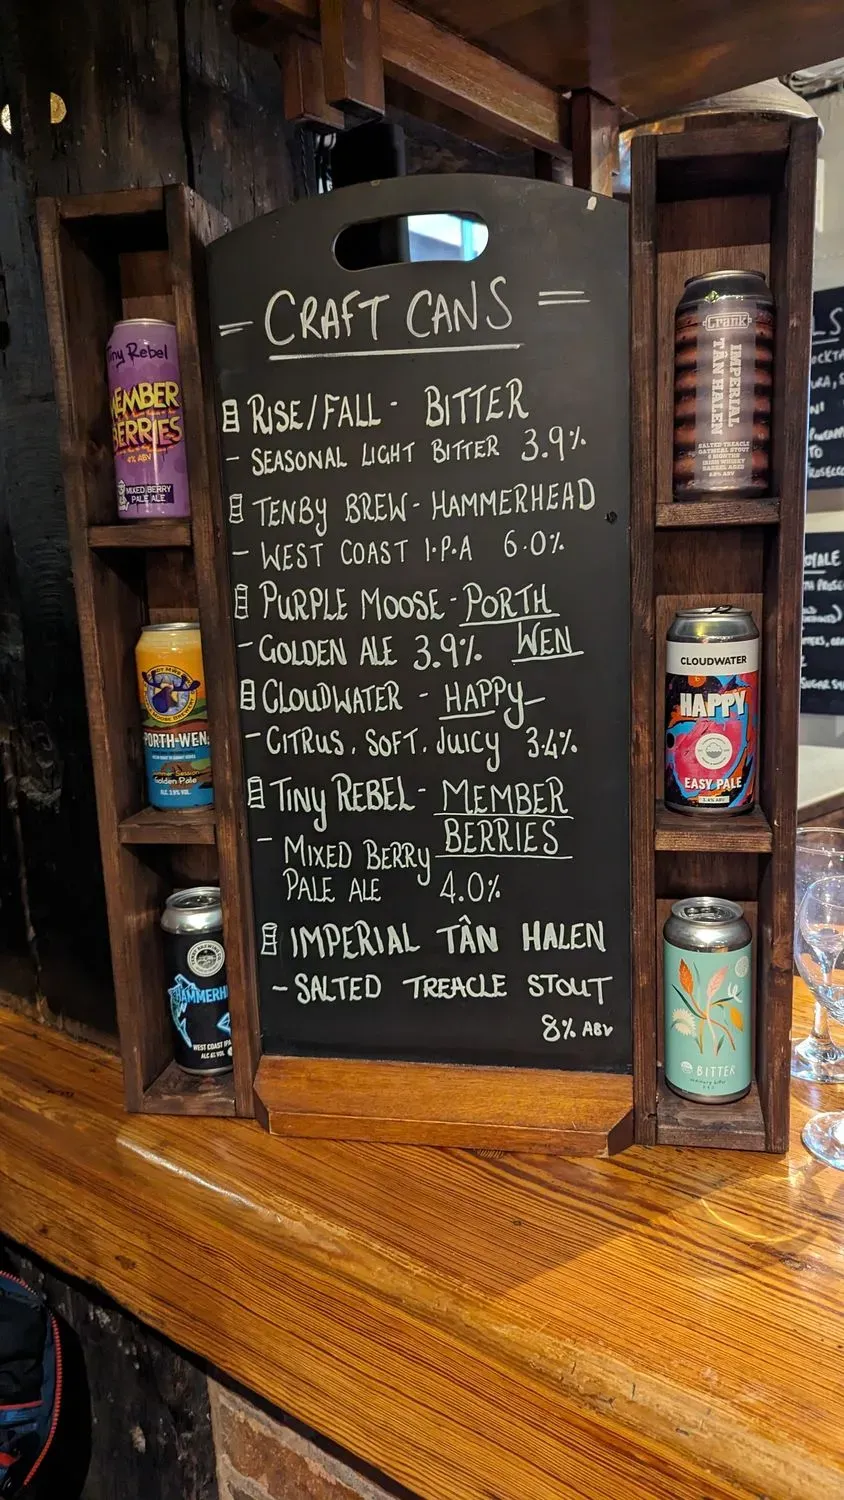 = CRAFT CANS =
RISE/FALL - BITTER
- SEASONAL LIGHT BITTER 3.9%
TENBY BREW - HAMMERHEAD
- WEST COAST I.P.A 6.0%
PURPLE MOOSE - PORTH
WEN
- GOLDEN ALE 3.9%
CLOUDWATER - HAPPY
- CITRUS, SOFT, JUICY 3.4%
TINY REBEL - MEMBER
BERRIES
- MIXED BERRY
PALE ALE 4.0%
IMPERIAL TÂN HALEN
- SALTED TREACLE STOUT
8% ABV
Tiny Rebel
MEMBER
BERRIES
4% ABV
MIXED BERRY
PALE ALE
PORTH-WEN
Summer Session
Golden Pale
ALC. 3.9% VOL.
HAMMERH
WEST COAST IPA
ALC 6% VOL
Crank
IMPERIAL
TÂN HALEN
SALTED TREACLE
OATMEAL STOUT
6 MONTHS
IRISH WHISKY
BARREL AGED
CLOUDWATER
HAPPY
EASY PALE
3.4% ABV
BITTER